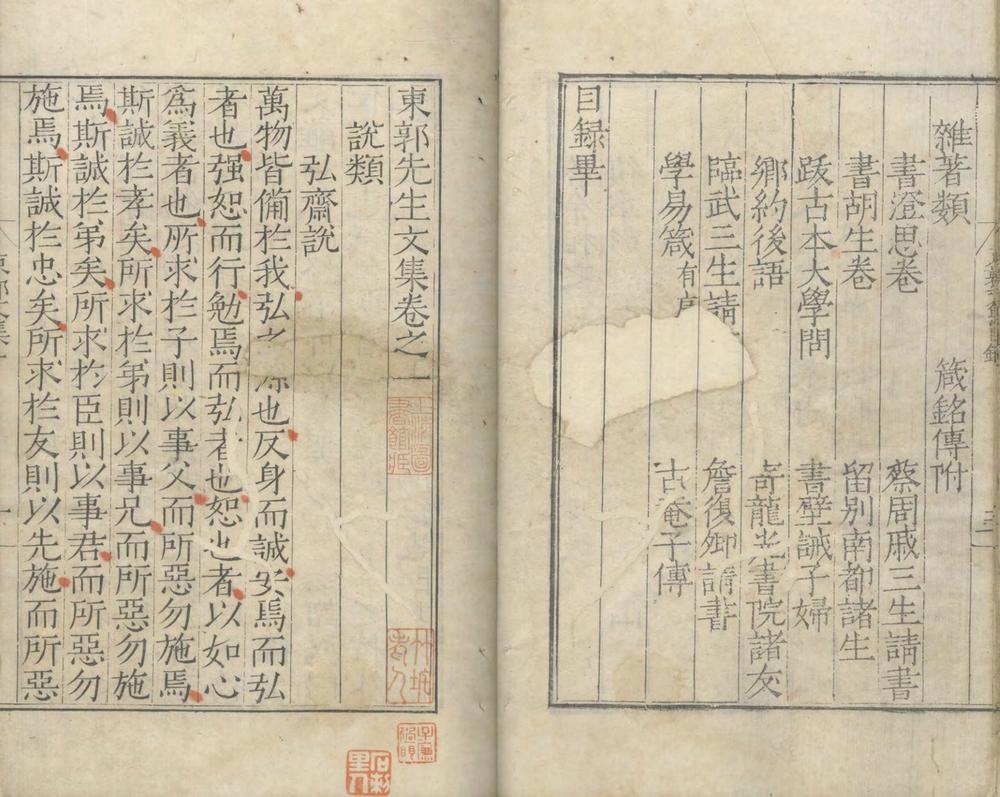 雜著類 箴銘傳附
書澄思卷 蔡周戚三生請書
書胡生卷 留別南都諸生
跋古本大學問 書壁誡子婦
鄉約後語 龍光書院諸友
臨武三生請 詹復卿請書
學易箴有 古菴子傳
目録畢
東郭先生文集卷之一
說類
弘齋說
萬物皆備於我弘之 也反身而誠 焉而弘
者也强恕而行勉焉而弘者也恕也者以如心
爲義者也所求於子則以事父而所惡勿施焉
斯誠於孝矣所求於弟則以事兄而所惡勿施
焉斯誠於弟矣所求於臣則以事君而所惡勿
施焉斯誠於忠矣所求於友則以先施而所惡
上海圖書館藏